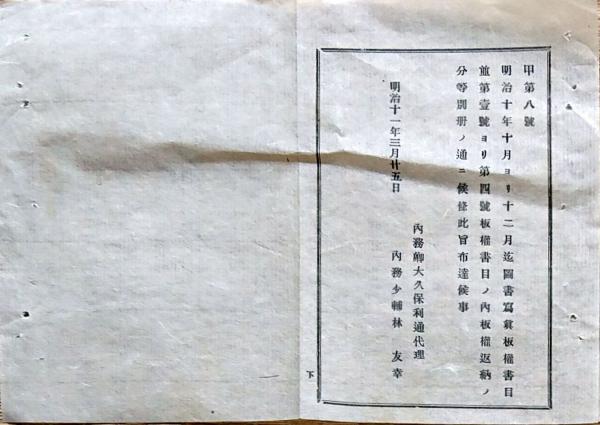 甲第八號
明治十年十月ヨリ十二月迄圖書寫眞板權書目
並第壹號ヨリ第四號板權書目ノ內板權返納ノ
分等別册ノ通ニ候條此旨布達候事
明治十一年三月廿五日
內務卿大久保利通代理
內務少輔林友幸
下